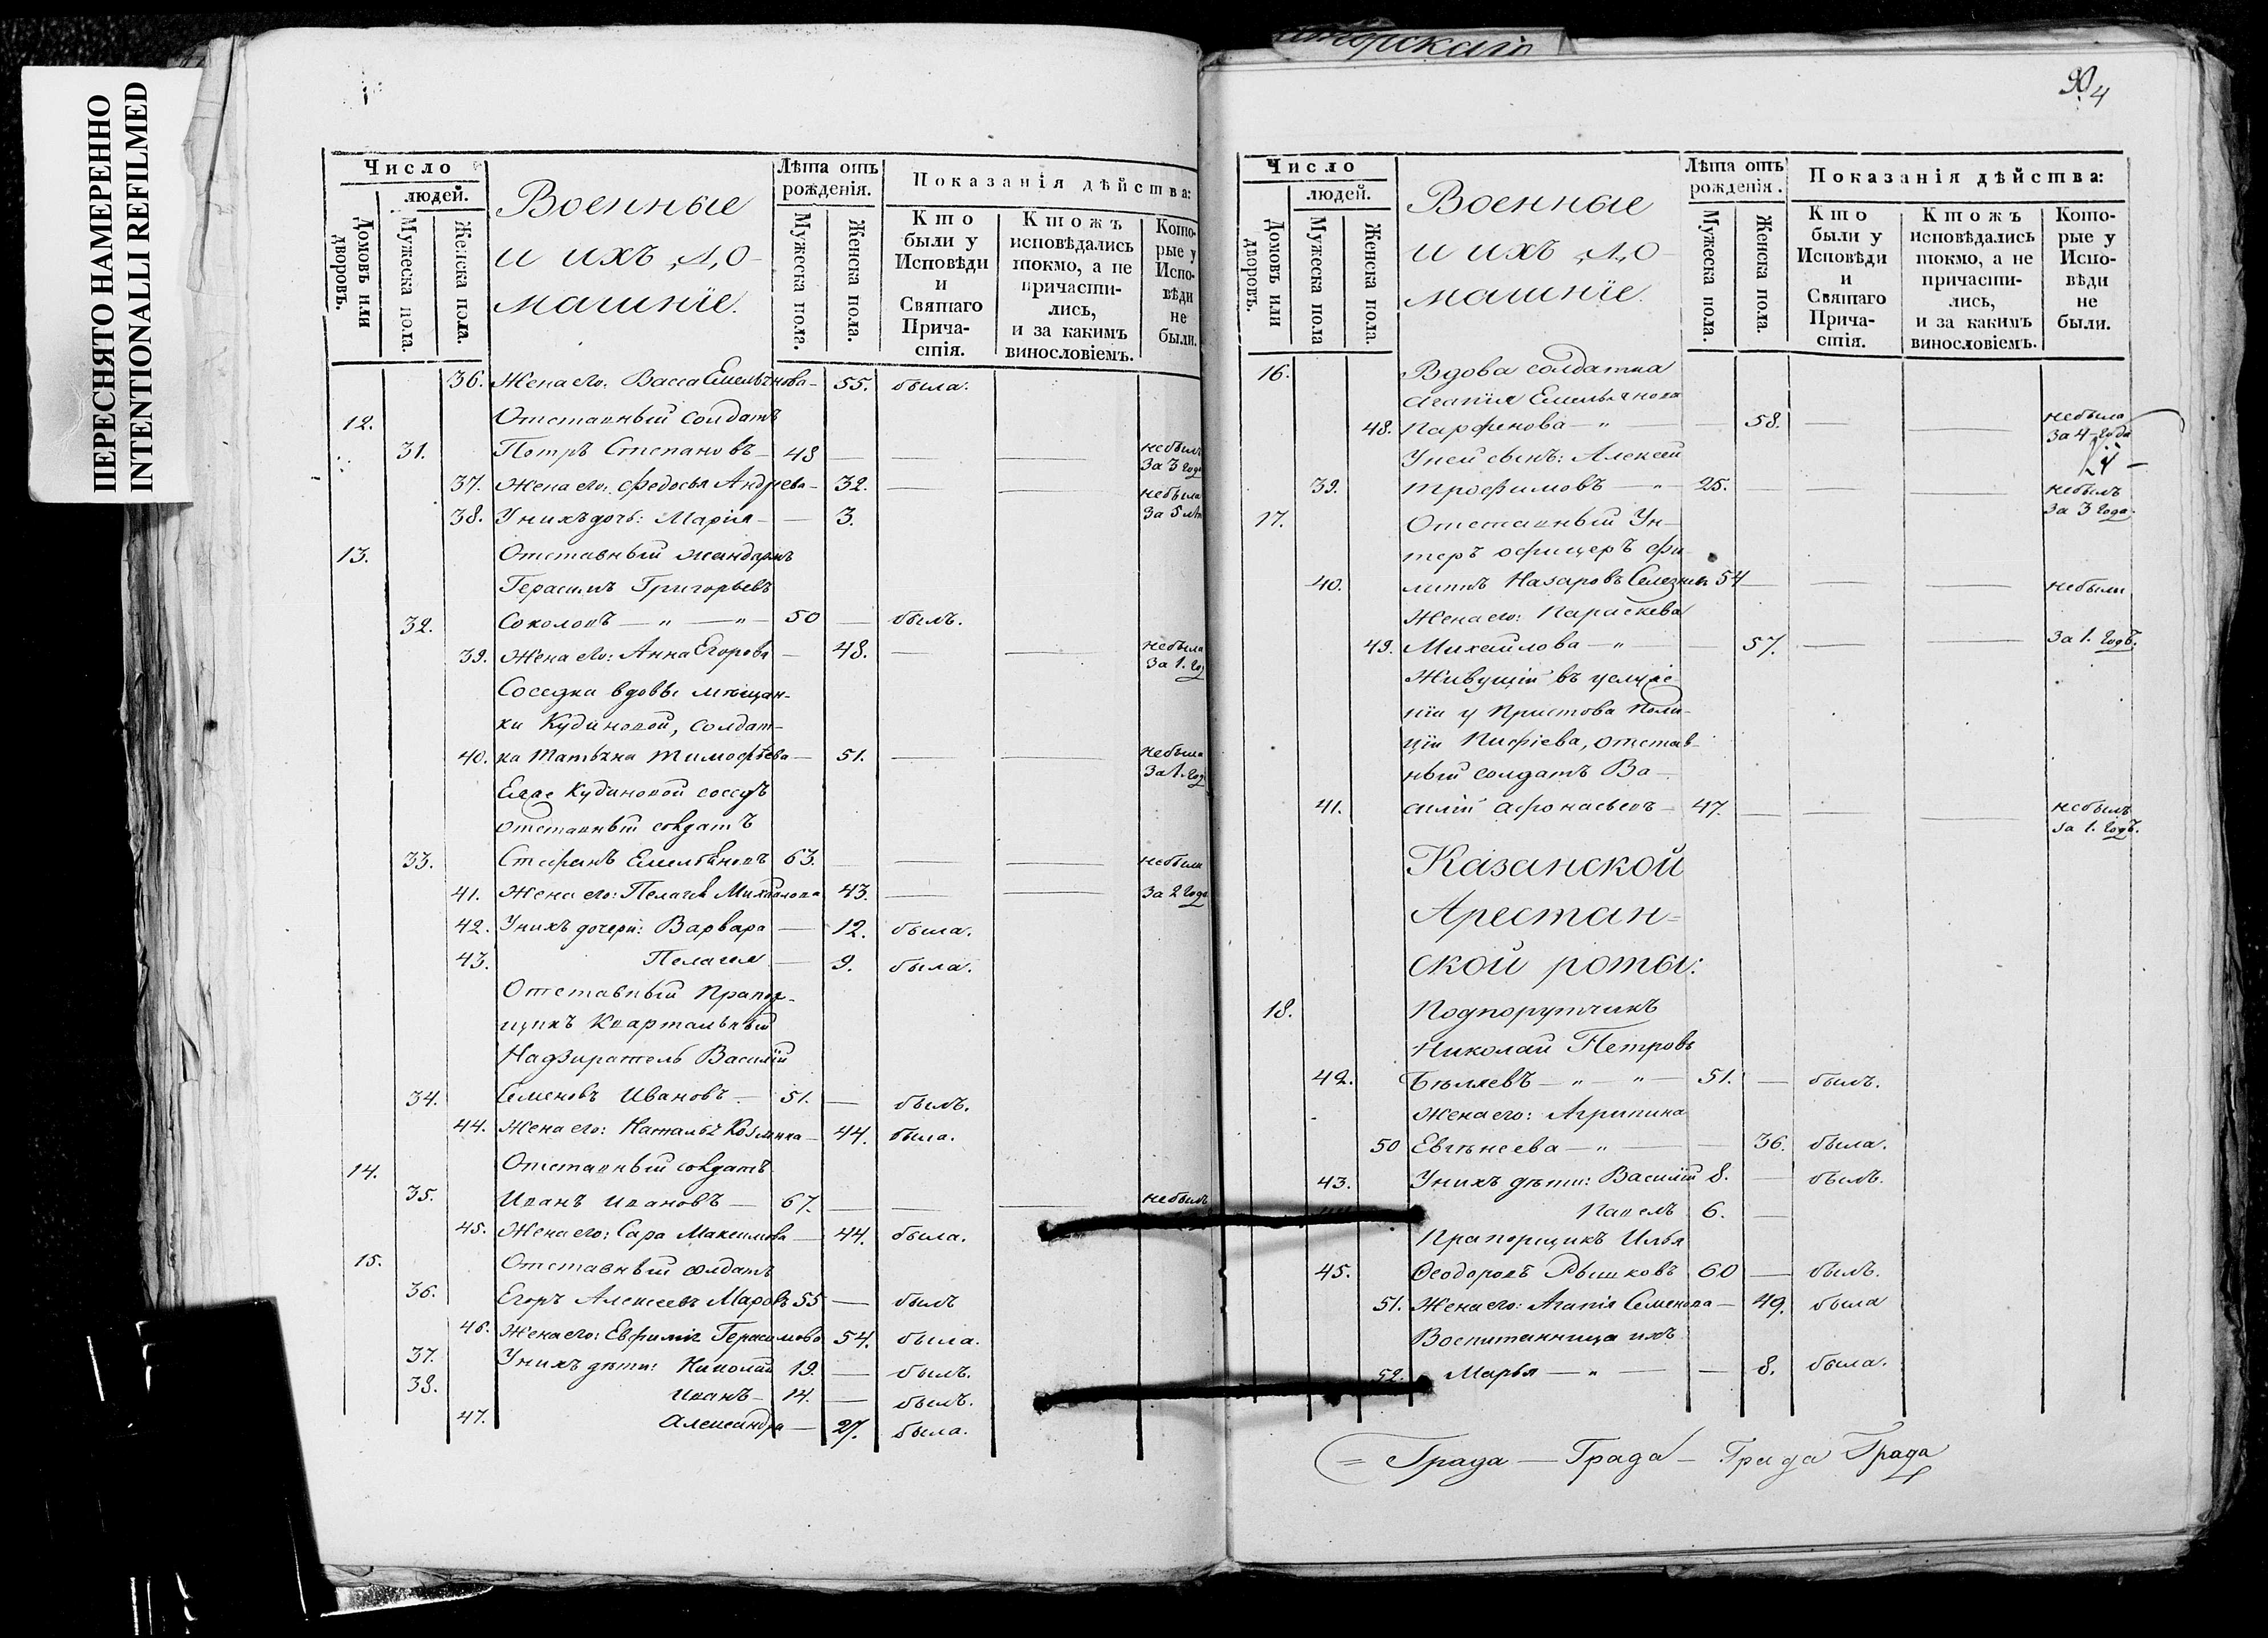 ПЕРЕСНЯТО НАМЕРЕННО
INTENTIONALLI REFILMED
Число
людей.
Домовъ или дворовъ.
Мужеска пола.
Женска пола.
Военные
и ихъ до-
машніе.
Лѣта отъ рожденія.
Мужеска пола.
Женска пола.
Показанія дѣйства:
Кто были у Исповѣди и Святаго Прича-стія.
Ктожъ исповѣдались токмо, а не причасти-лись, и за какимъ винословіемъ.
Кото-рые у Испо-вѣди не были.
36. Жена его: Васса Емельянова — 55. была.
12. Отставный Солдатъ
31. Петръ Степановъ — 48 — — — небылъ за 3 года
37. Жена его: Федосья Андреева — 32. — — небыла
38. У нихъ дочь: Марія — — 3. за 5 лѣтъ
13. Отставный жандармъ
Герасимъ Григорьевъ
32. Соколовъ — „ — „ — 50 — былъ.
39. Жена его: Анна Егорова — 48. — — небыла за 1. год
Соседка вдовы мѣщан-
ки Кудиновой, солдат-
40. ка Татьяна Тимофѣева — 51. — — небыла за 1. год
Елее Кудиновой соседъ
отставный солдатъ
33. Стефанъ Емельяновъ 63. — — — небыли
41. Жена его: Пелагея Михайлова 43. — — за 2 года
42. У нихъ дочери: Варвара — 12. была.
43. Пелагея — 9. была.
Отставный Прапор-
щикъ Квартальный
Надзиратель Василій
34. Семеновъ Ивановъ — 51. — былъ.
44. Жена его: Наталья Козмина — 44. была.
14. Отставный солдатъ
35. Иванъ Ивановъ — 67. — — — небылъ
45. Жена его: Сара Максимова — 44. была.
15. Отставный солдатъ
36. Егоръ Алексеевъ Маровъ 55 — былъ
46. Жена его: Евфимія Герасимова 54. была.
37. У нихъ дѣти: Николай 19. — былъ.
38. Иванъ — 14. — былъ.
47. Александра — 27. была.
аторскаго
90.
4
Число
людей.
Домовъ или дворовъ.
Мужеска пола
Женска пола.
Военные
и ихъ до-
машніе.
Лѣта отъ рожденія.
Мужеска пола.
Женска пола.
Показанія дѣйства:
Кто были у Исповѣди и Святаго Прича-стія.
Ктожъ исповѣдались токмо, а не причасти-лись, и за какимъ винословіемъ.
Кото-рые у Испо-вѣди не были.
16. Вдова солдатка
Агапія Емельянова
48. Парфенова — „ — — 58. — — небыла за 4 года
У ней сынъ: Алексей
39. Трофимовъ — „ — 25. — — небылъ за 3 года.
17. Отставный Ун-
теръ офицеръ Фи-
40. липпъ Назаровъ Селезневъ 54 — — — небыли
Жена его: Параскева
49. Михайлова — „ — — 57. — — за 1. годъ.
Живущій въ услуже-
ніи у Пристава Поли-
ціи Пифіева, отстав-
ный солдатъ Ва-
41. силій Афонасьевъ — 47. — — — небылъ за 1. годъ.
Казанской
Арестан=
ской роты:
18. Подпорутчикъ
Николай Петровъ
42. Бѣляевъ — „ — „ — 51. — былъ.
Жена его: Агрипина
50 Евгенеева — „ — — 36. была.
43. У нихъ дѣти: Василій 8. — былъ.
Павелъ 6. —
Прапорщикъ Илья
45. Ѳеодоровъ Рышковъ 60 — былъ.
51. Жена его: Агапія Семенова — 49. была
Воспитанница ихъ
52. Марья — „ — — 8. была.
= Града — Града — Града Града